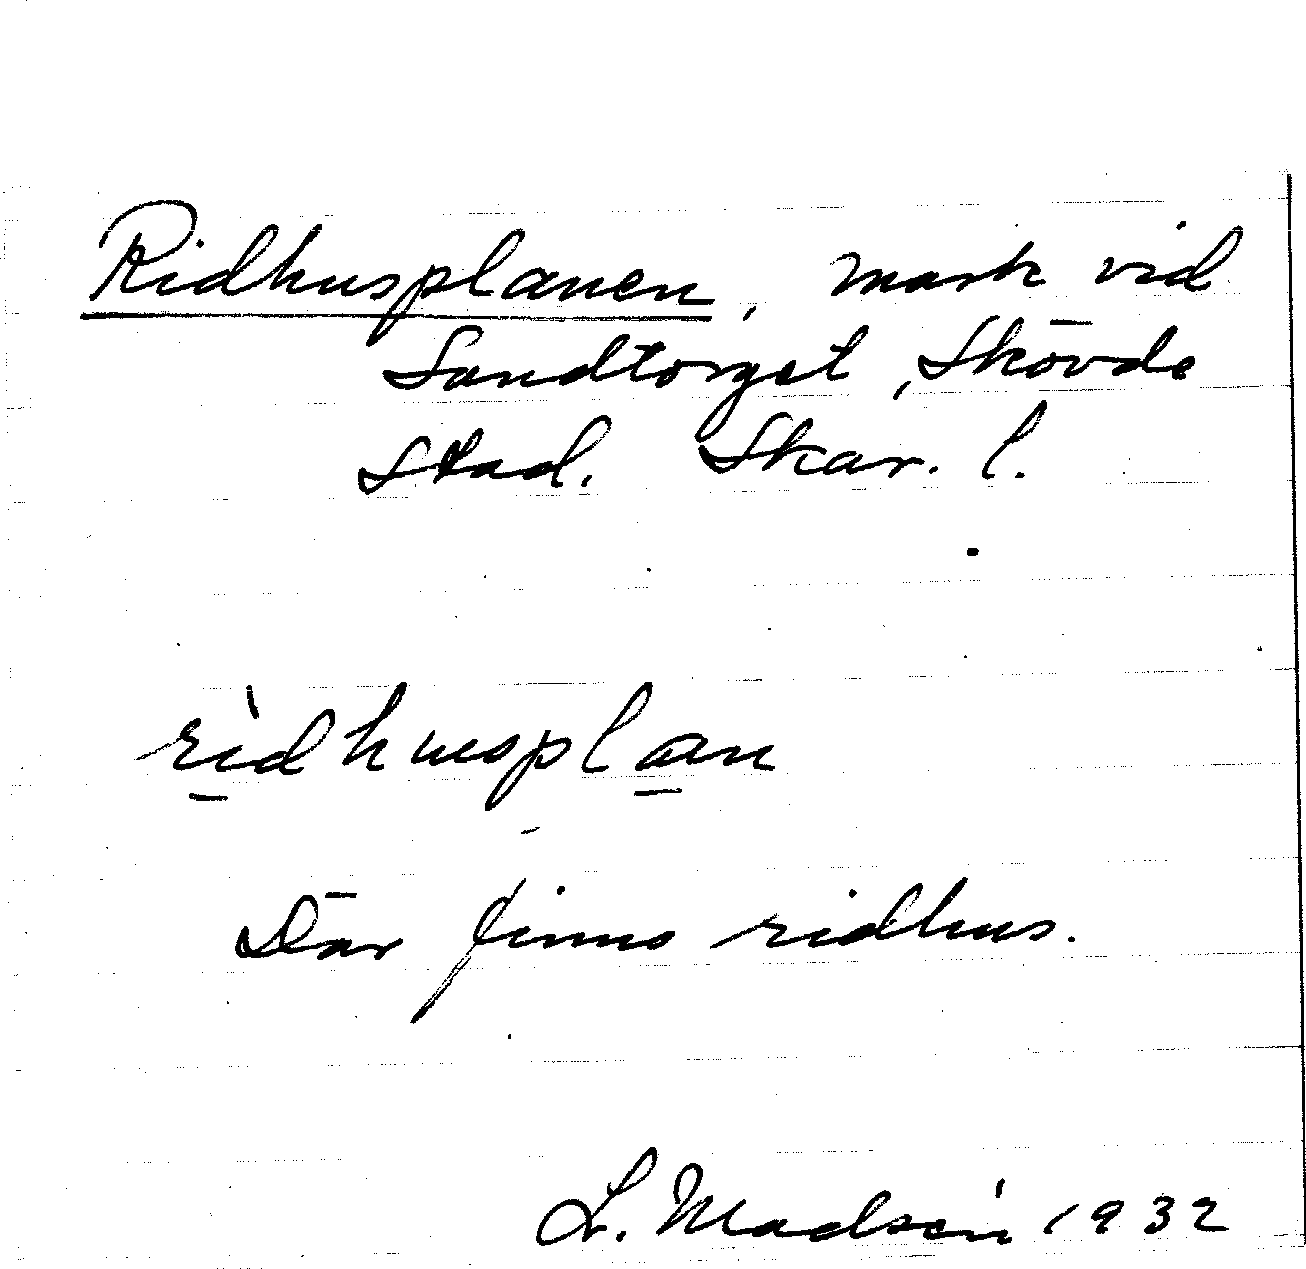 Ridhusplanen, mark vid
Sandtorget, Skövde
stad. Skar. l.
rìdhusplan
Där finns ridhus.
L. Madsén 1932